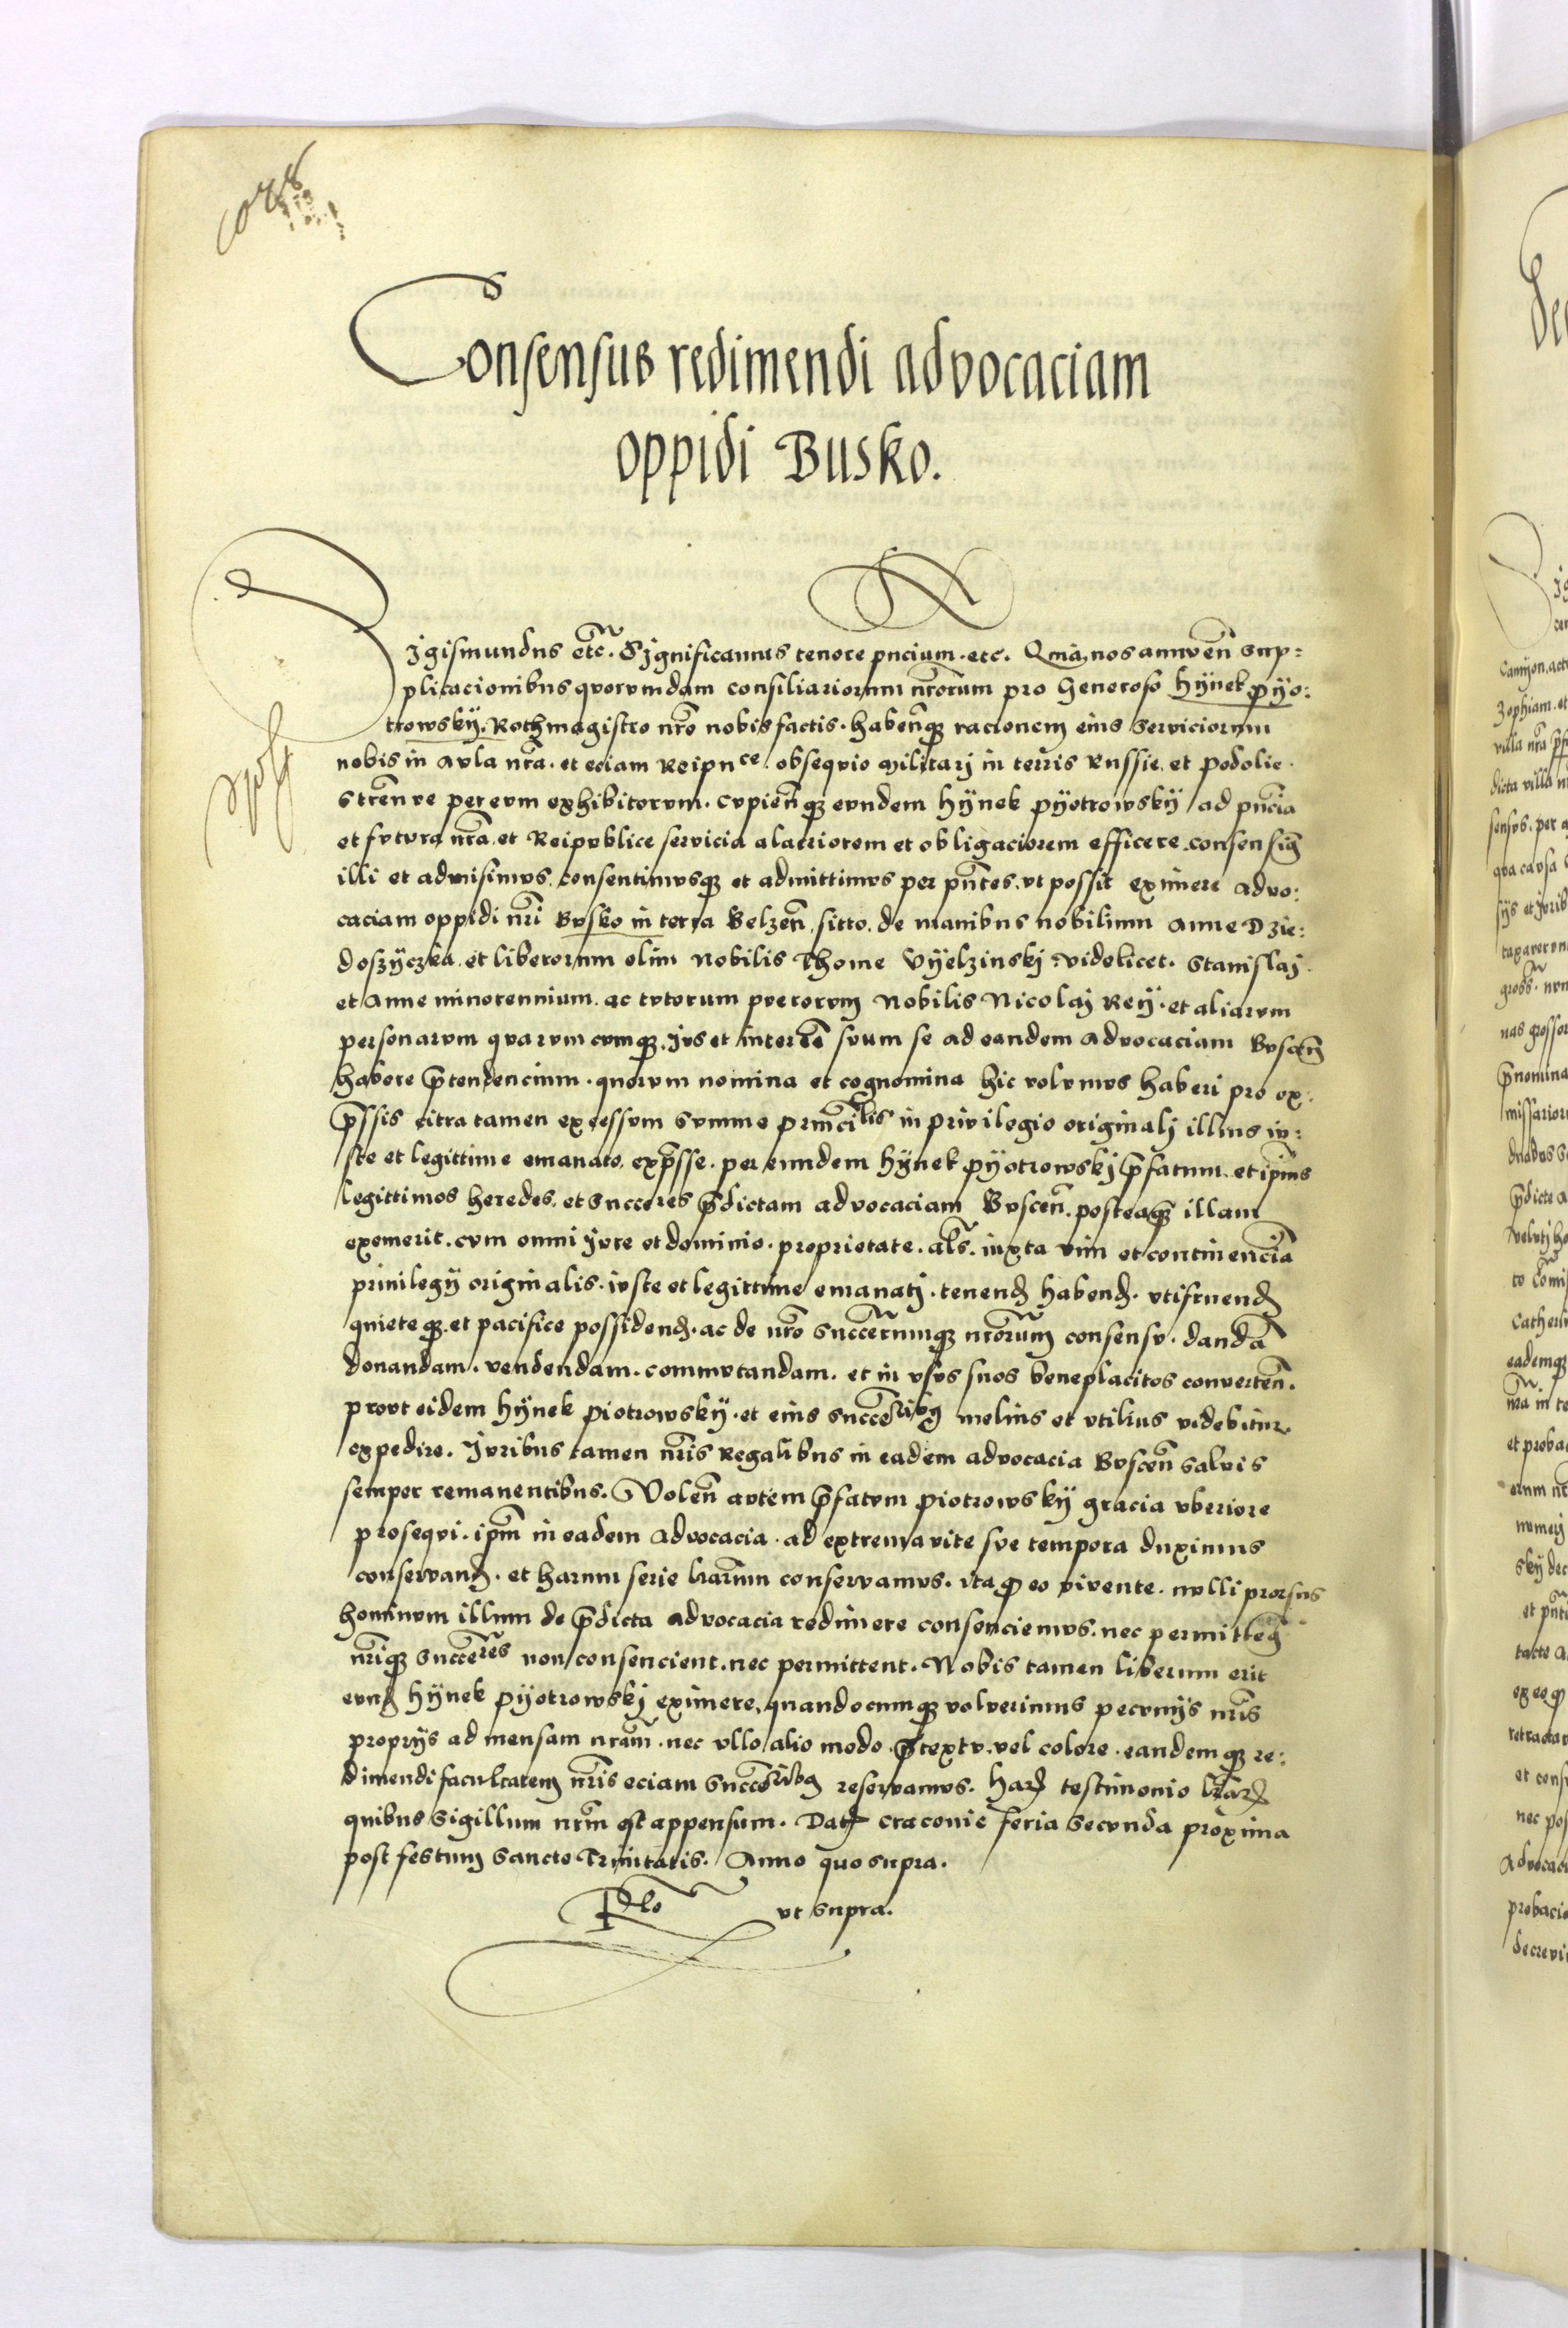 Consensus redimendi advocaciam
oppidi Busko.
Zigismundus etc. Significamus tenore pncium. etc. Qma nos annuen̄ sup=
plicacionibus quorumdam consiliariorum nrorum pro Generoso Hÿnek Pÿo:
trowskÿ. Rothmagistro nro nobis factis. habenq̃ racionem eius serviciorum
nobis in aula nra. et eciam Reipuce. obsequio militarj in terris Russie. et Podolie.
strenue per eum exhibitorum. cupienq̃ eundem Hÿnek Pÿotrowskÿ ad pncia
et futura nra. et Reipublice servicia alacriorem et obligaciorem efficere. consensim̃
illi et admisimus. consentimusq̃ et admittimus per pntes. ut possit eximere advo:
caciam oppidi nri Busko in terra Belzen̄. sitto. de manibus nobilium Anne Dzie:
doszÿczka. et liberorum olim Nobilis Thome Vÿelzinskj videlicet. Stanislaj.
et Anne minorennium. ac tutorum puerorum Nobilis Nicolaj Reÿ. et aliarum
personarum quarumcumq̃. Jus et interesse suum se ad eandem advocaciam Buscen̄
habere p̄tendencium. quorum nomina et cognomina hic volumus haberi pro ex:
p̄ssis citra tamen excessum summe principalis in privilegio originalj illius iu:
ste et legittime emanato. exp̄sse. per eundem Hÿnek Pÿotrowskj p̄fatum. et ipius
legittimos heredes. et succores p̄dictam advocaciam Buscen̄. posteaq̃ illam
exemerit. cum omni jure et dominio. proprietate. als. iuxta vim et continencia
privilegÿ originalis. iuste et legittime emanatj. tenend̃ habend̃. utifruend̃
quieteq̃. et pacifice possidend̃. ac de nro succorumq̃ nrorum consensu. danda
donandam. vendendam. commutandam. et in usus suos beneplacitos converten̄.
prout eidem Hÿnek Piotrowskÿ. et eius succoribus melius et utilius videbitur.
expedire. Juribus tamen nris Regalibus in eadem advocacia Buscen̄ salvis
semper remanentibus. Volen̄ autem p̄fatum Piotrowskÿ gracia uberiore
prosequi. ipm in eadem advocacia. ad extrema vite sue tempora duximus
conservand̃. et harum serie lrarum conservamus. ita q̃ eo vivente. nulli prorsus
hominum illum de p̄dicta advocacia redimere consenciemus. nec permittem̃
nriq̃ succores non consencient. nec permittent. Nobis tamen liberum erit
eund̃ Hÿnek Pÿotrowskj eximere, quandocumq̃ voluerimus pecunijs nris
proprijs ad mensam nram. nec ullo alio modo p̄textu. vel colore. eandemq̃ re:
dimendi facultatem nris eciam succoribus reservamus. Har̃ testimonio lrar̃
quibus sigillum nrm est appensum. Dat̃ Cracovie feria secunda proxima
post festum Sancte Trinitatis. Anno quo supra.
Rlo ut supra.